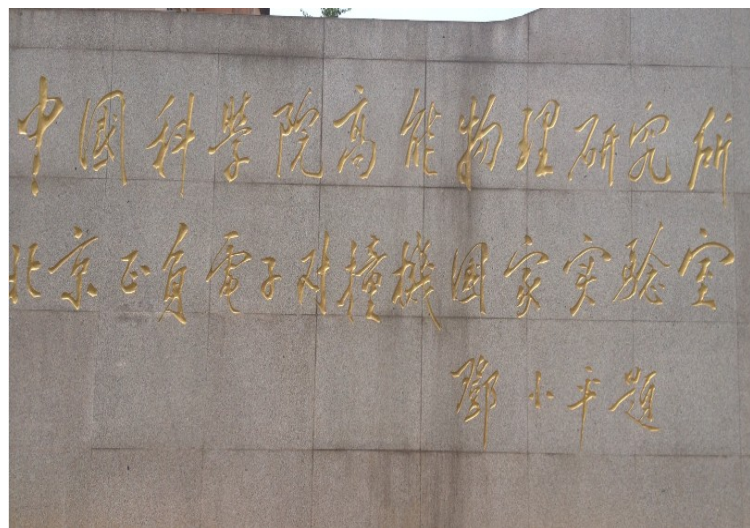 中國科學院高能物理研究所
北京正負電子对撞機國家实驗室
鄧小平題